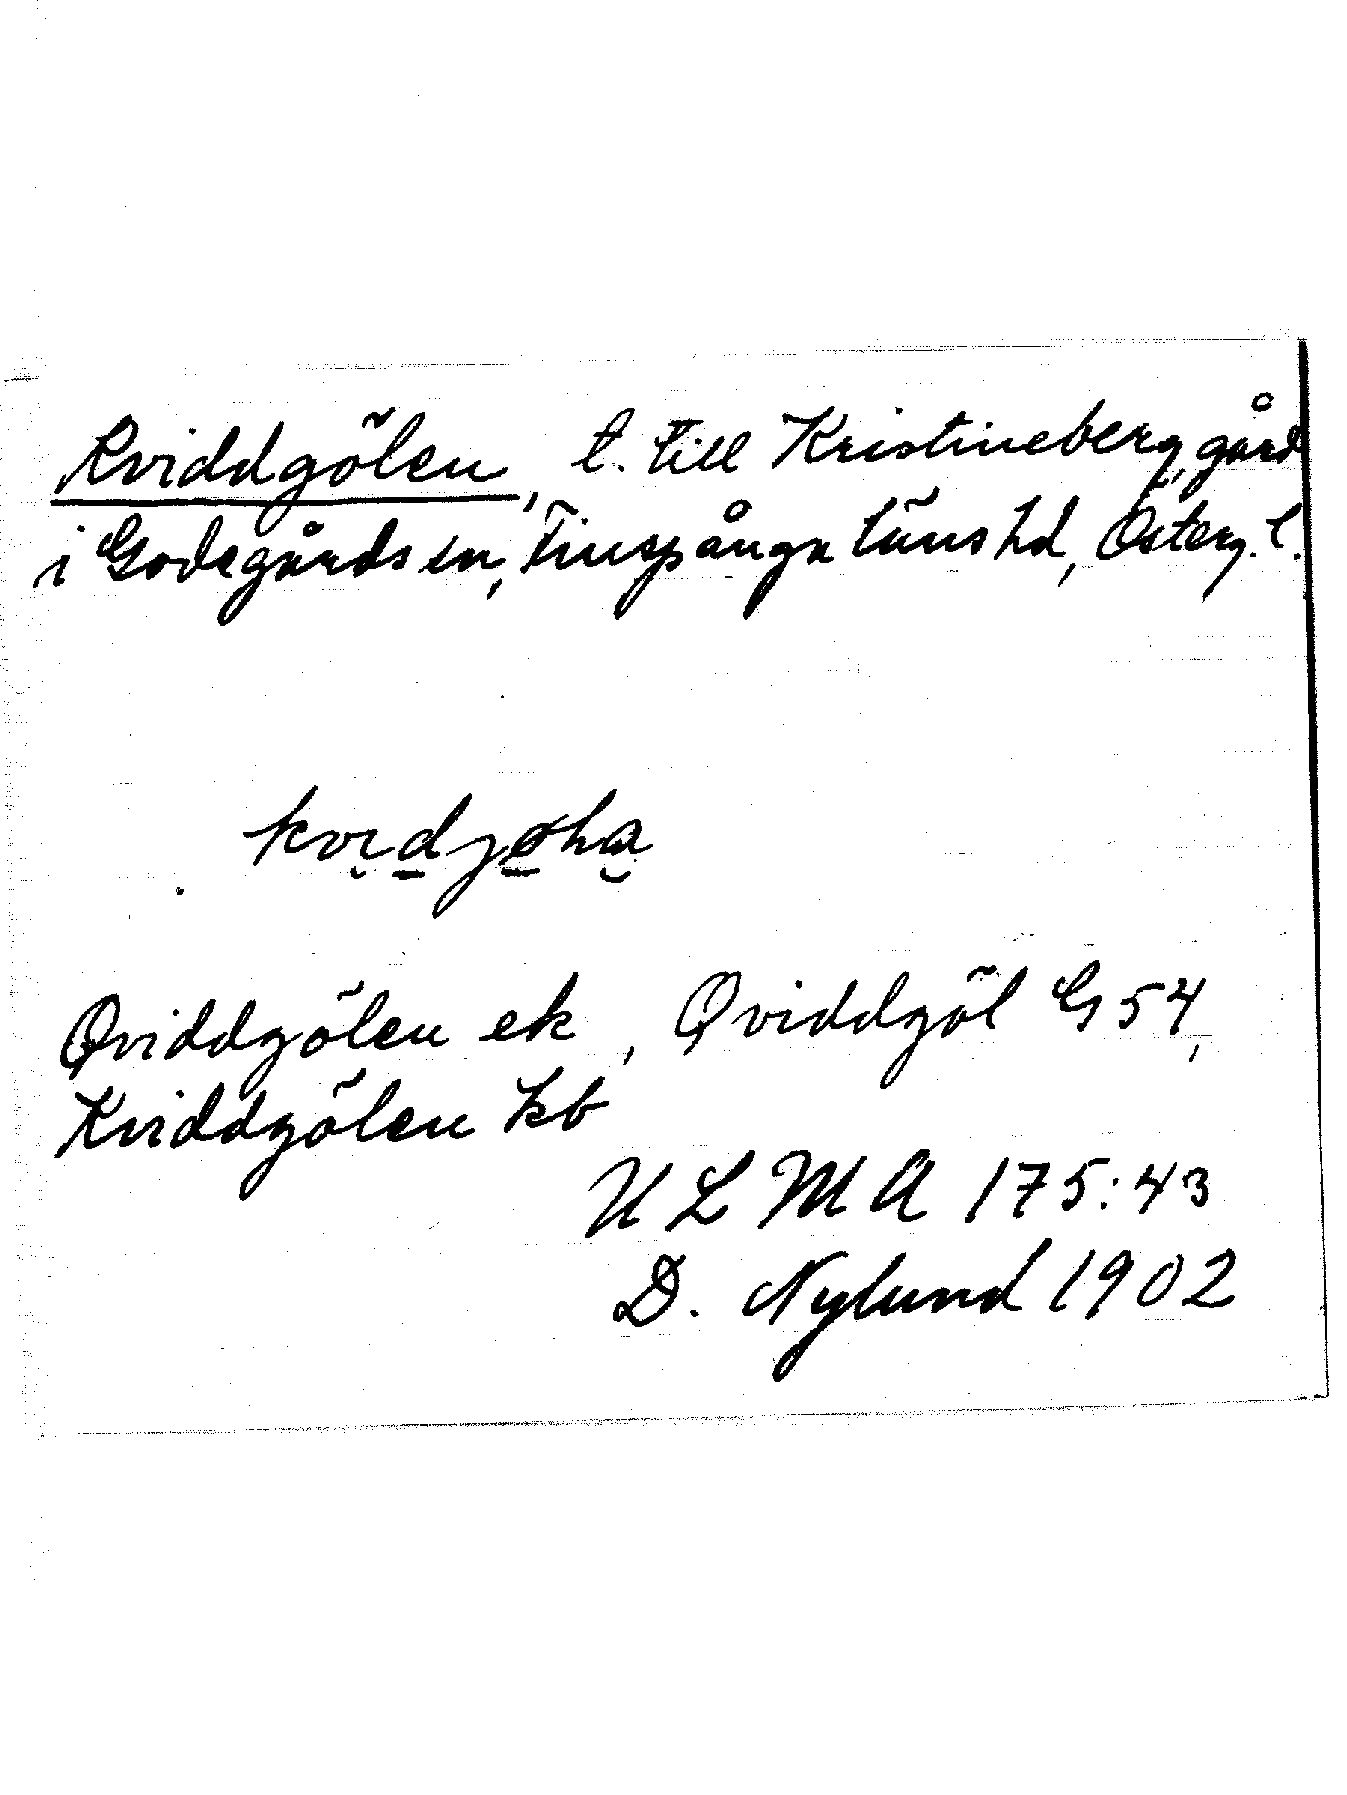 Kviddgölen, t. till Kristineberg, gård
i Godegårds sn, Finspånga läns hd, Österg. l.
Qviddgölen ek, Qviddgöl G 54,
Kviddgölen kb
ULMA 175:43
D. Nylund 1902